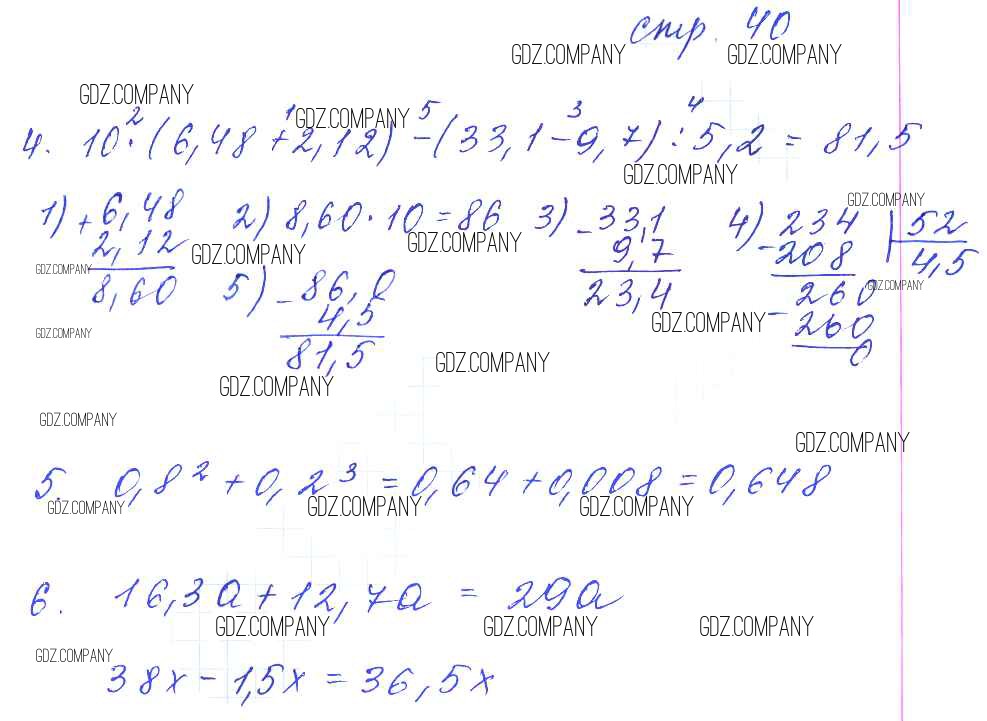 стр. 40
GDZ.COMPANY GDZ.COMPANY
GDZ.COMPANY
GDZ.COMPANY
2 1 5 3 4
4. 10·(6,48+2,12)-(33,1-9,7):5,2=81,5
GDZ.COMPANY
GDZ.COMPANY
1) +6,48 2) 8,60·10=86 3) -33,1 4) 234 | 52
2,12 9,7 -208 4,5
GDZ.COMPANY GDZ.COMPANY
GDZ.COMPANY GDZ.COMPANY
8,60 5) -86,0 23,4 260
4,5 -260
GDZ.COMPANY GDZ.COMPANY
81,5 0
GDZ.COMPANY
GDZ.COMPANY
GDZ.COMPANY
GDZ.COMPANY
5. 0,8²+0,2³=0,64+0,008=0,648
GDZ.COMPANY GDZ.COMPANY GDZ.COMPANY
6. 16,3a+12,7a=29a
GDZ.COMPANY GDZ.COMPANY GDZ.COMPANY
GDZ.COMPANY
38x-1,5x=36,5x